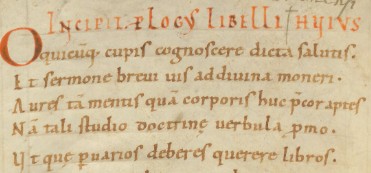 INCIPIT. PLOGVS LIBELLI HVIVS
O quicūq; cupis cognoscere dicta salutis.
Et sermone brevi vis ad divina moneri.
Aures tā mentis quā corporis huc p̄cor aptes
Nā tali studio doctrinę verbula ꝓmo.
Vt quę ꝑ varios deberes querere libros.